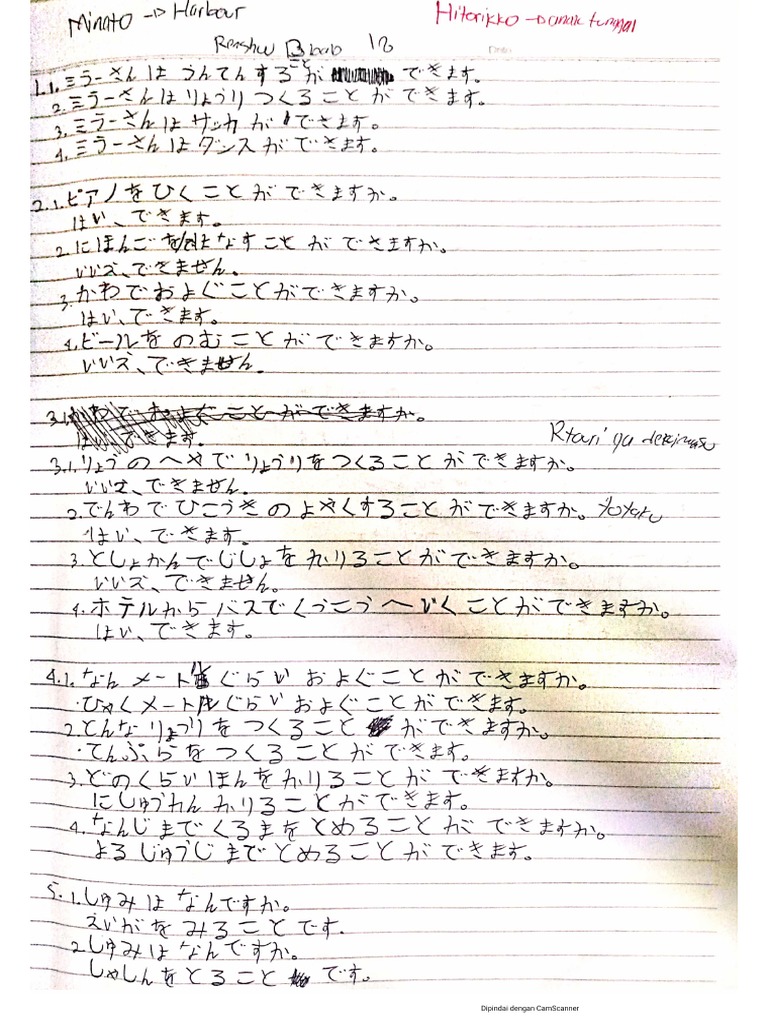 Minato → Harbour
Hitorikko → anak tunggal
Renshu B bab 18
1.1. ミラーさんは うんてんすることが できます。
2. ミラーさんは りょうり つくる ことが できます。
3. ミラーさんは サッカ が できます。
4. ミラーさんは ダンスが できます。
2.1. ピアノを ひく ことが できますか。
はい、できます。
2. にほんごを はなす ことが できますか。
いいえ、できません。
3. かわで およぐ ことが できますか。
はい、できます。
4. ビールを のむ ことが できますか。
いいえ、できません。
3.1. かわで およぐ ことが できますか。
はい、できます。
Rtouri ga dekimasu
3.1. りょうの へやで りょうりを つくる ことが できますか。
いいえ、できません。
2. でんわで ひこうきの よやくする ことが できますか。 Yoyaku
はい、できます。
3. としょかんで じしょを かりる ことが できますか。
いいえ、できません。
4. ホテルから バスで くうこうへ いく ことが できますか。
はい、できます。
4.1. なん メートル ぐらい およぐ ことが できますか。
・ひゃくメートル ぐらい およぐ ことが できます。
2. どんな りょうりを つくる こと が できますか。
・てんぷらを つくる ことが できます。
3. どのくらい ほんを かりる ことが できますか。
にしゅうかん かりる ことが できます。
4. なんじまで くるまを とめる ことが できますか。
よる じゅうじまで とめる ことが できます。
5.1. しゅみは なんですか。
えいがを みる ことです。
2. しゅみは なんですか。
しゃしんを とる こと です。
Dipindai dengan CamScanner